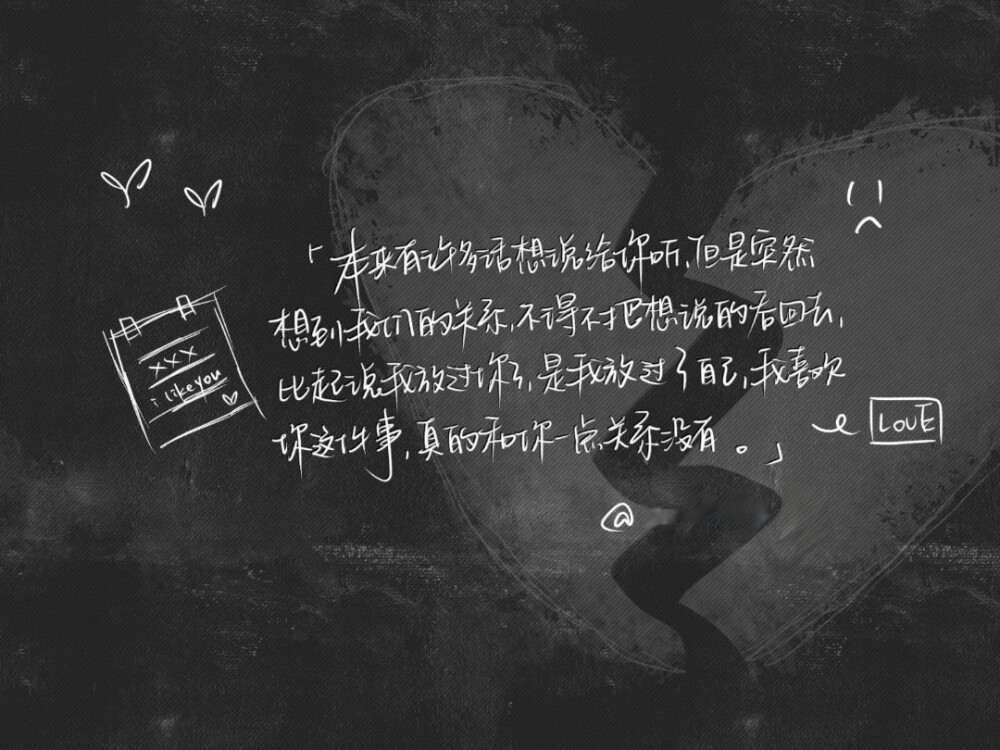 「本来有许多话想说给你听,但是突然
想到我们的关系,不得不把想说的吞回去,
比起说我放过你了,是我放过了自己,我喜欢
你这件事,真的和你一点关系没有。」
xxx
i like you
LOVE
@